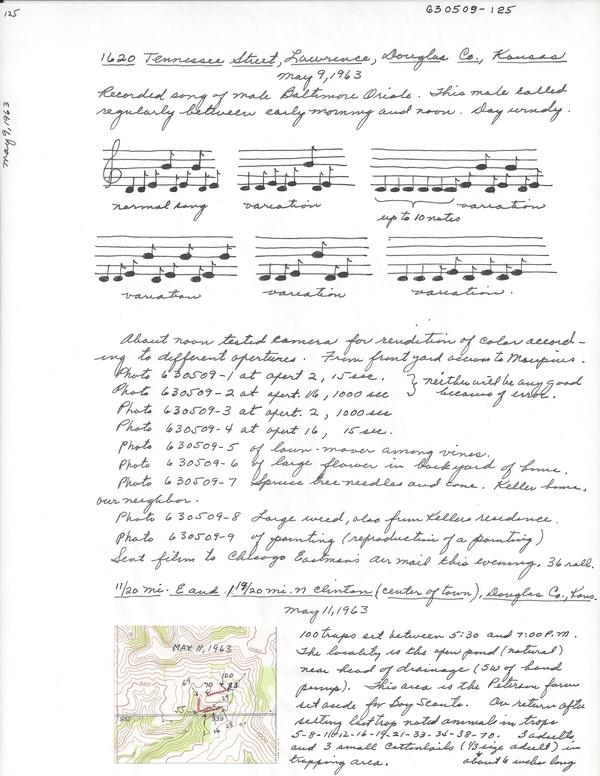 125
630509-125
May 9, 1963
1620 Tennessee Street, Lawrence, Douglas Co., Kansas
May 9, 1963
Recorded song of male Baltimore Oriole. This male called
regularly between early morning and noon. Day windy.
normal song
variation
up to 10 notes
variation
variation
variation
variation.
About noon tested camera for rendition of color accord-
ing to different apertures. From front yard across to Maupins.
Photo 630509-1 at apert 2, 15 sec.
Photo 630509-2 at apert. 16, 1000 sec
} neither will be any good
because of error.
Photo 630509-3 at apert. 2, 1000 sec
Photo 630509-4 at apert 16, 15 sec.
Photo 630509-5 of lawn-mower among vines.
Photo 630509-6 of large flower in backyard of home.
Photo 630509-7 Spruce tree needles and cone. Keller home,
our neighbor.
Photo 630509-8 Large weed, also from Kellers residence.
Photo 630509-9 of painting (reproduction of a painting)
Sent film to Chicago Eastmans air mail this evening. 36 roll.
11/20 mi. E and 1 19/20 mi. N Clinton (center of town), Douglas Co., Kans.
May 11, 1963
MAY 11, 1963
69
70
100
55
16
100 traps set between 5:30 and 7:00 P.M.
The locality is the open pond (natural)
near head of drainage (SW of hand
pump). This area is the Peterson farm
set aside for Boy Scouts. On return after
setting last trap noted animal in traps
5-8-11-12-16-19-21-33-34-38-70. 3 adults
and 3 small Cottontails (1/3 size adult) in
trapping area.
about 6 weeks long